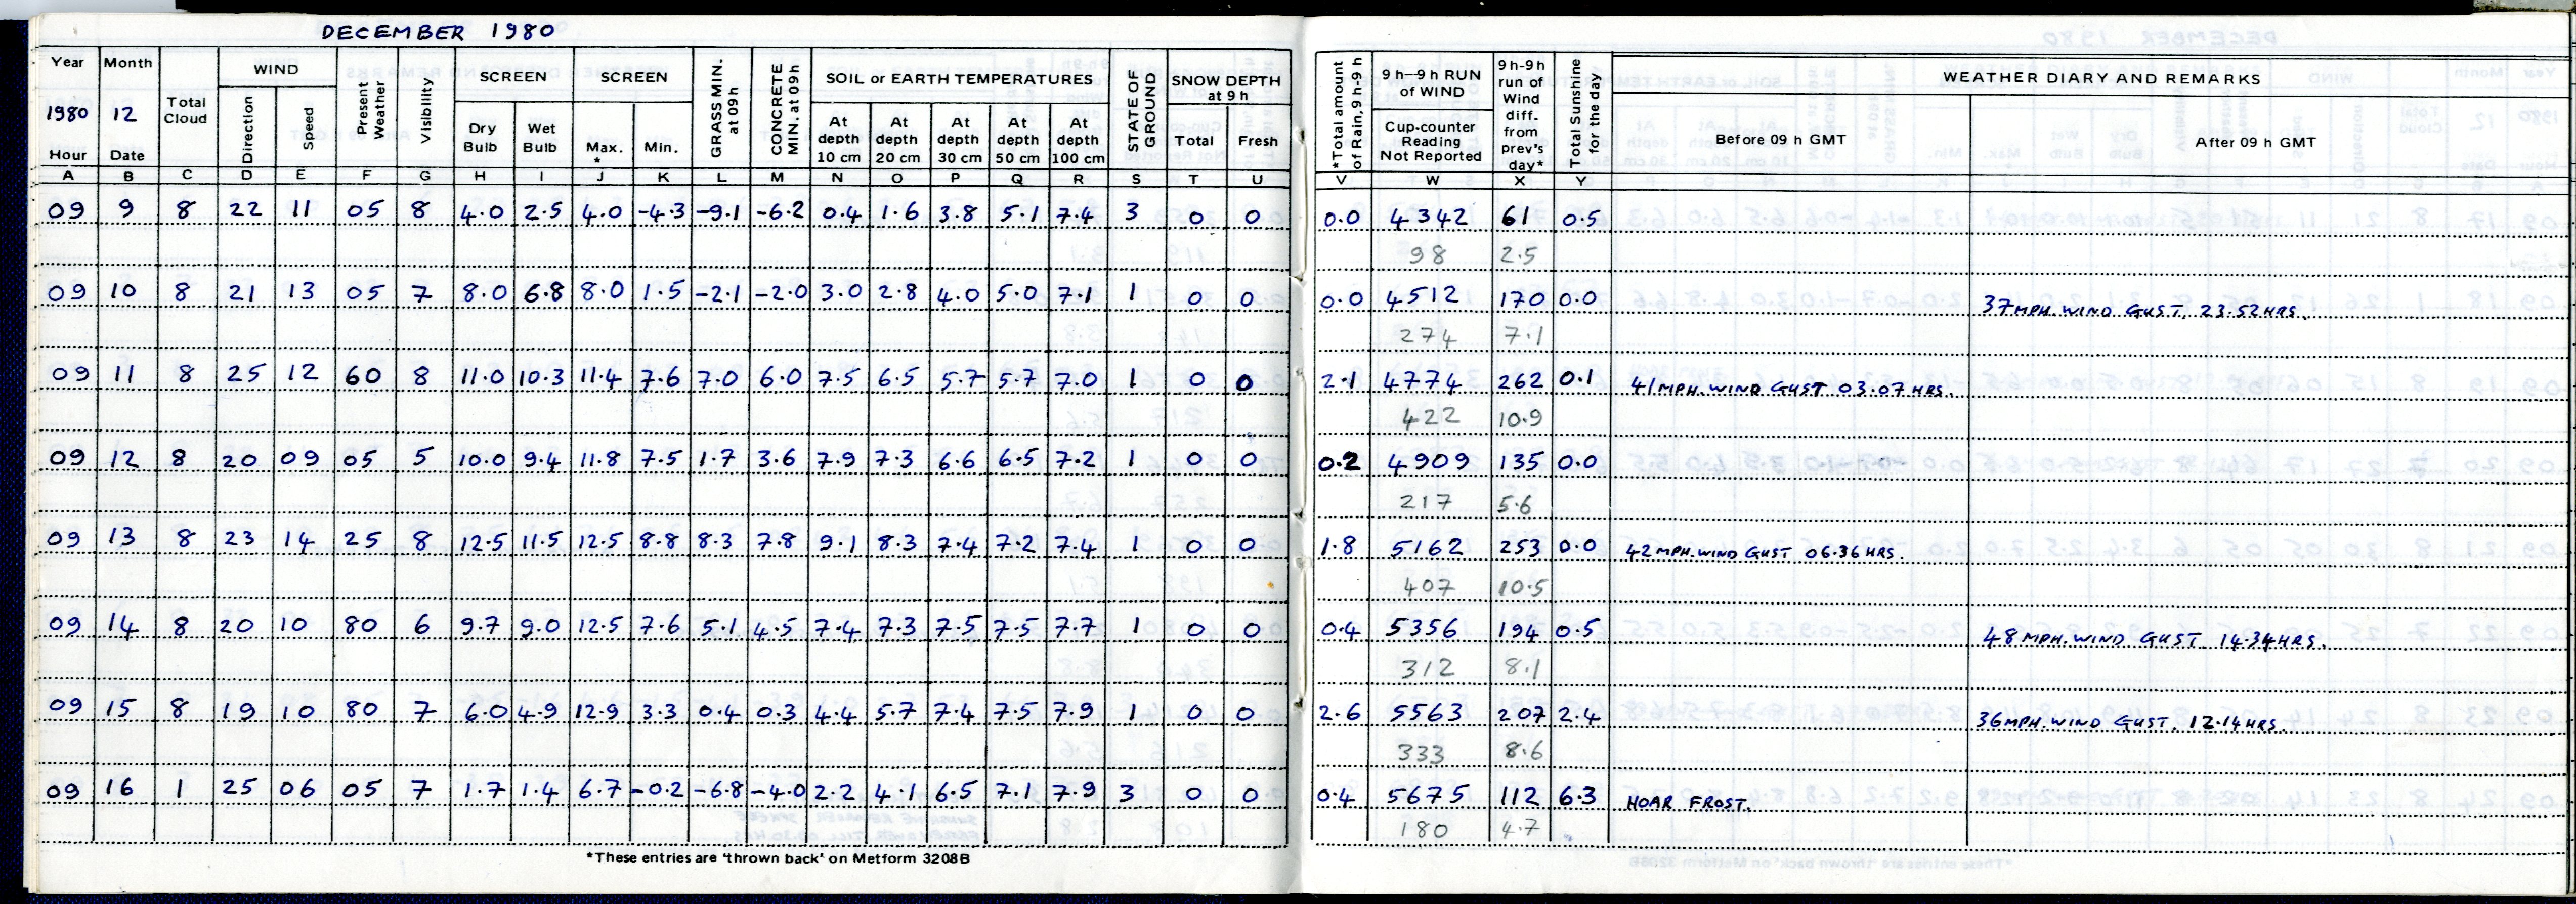 DECEMBER 1980
Year Month Total Cloud WIND Present Weather Visibility SCREEN SCREEN GRASS MIN. at 09h CONCRETE MIN. at 09h SOIL or EARTH TEMPERATURES STATE OF GROUND SNOW DEPTH at 9 h *Total amount of Rain, 9 h-9 h 9 h—9 h RUN of WIND 9 h-9h run of Wind diff. from prev's day* Total Sunshine for the day WEATHER DIARY AND REMARKS
1980 12
Hour Date Direction Speed Dry Bulb Wet Bulb Max. * Min. At depth 10 cm At depth 20 cm At depth 30 cm At depth 50 cm At depth 100 cm Total Fresh Cup-counter Reading Not Reported Before 09 h GMT After 09 h GMT
A B C D E F G H I J K L M N O P Q R S T U V W X Y
09 9 8 22 11 05 8 4.0 2.5 4.0 -4.3 -9.1 -6.2 0.4 1.6 3.8 5.1 7.4 3 0 0 0.0 4342 61 0.5
98 2.5
09 10 8 21 13 05 7 8.0 6.8 8.0 1.5 -2.1 -2.0 3.0 2.8 4.0 5.0 7.1 1 0 0 0.0 4512 170 0.0 37 MPH. WIND GUST. 23.52 HRS.
274 7.1
09 11 8 25 12 60 8 11.0 10.3 11.4 7.6 7.0 6.0 7.5 6.5 5.7 5.7 7.0 1 0 0 2.1 4774 262 0.1 41 MPH. WIND GUST 03.07 HRS.
422 10.9
09 12 8 20 09 05 5 10.0 9.4 11.8 7.5 1.7 3.6 7.9 7.3 6.6 6.5 7.2 1 0 0 0.2 4909 135 0.0
217 5.6
09 13 8 23 14 25 8 12.5 11.5 12.5 8.8 8.3 7.8 9.1 8.3 7.4 7.2 7.4 1 0 0 1.8 5162 253 0.0 42 MPH. WIND GUST 06.36 HRS.
407 10.5
09 14 8 20 10 80 6 9.7 9.0 12.5 7.6 5.1 4.5 7.4 7.3 7.5 7.5 7.7 1 0 0 0.4 5356 194 0.5 48 MPH. WIND GUST 14.34 HRS.
312 8.1
09 15 8 19 10 80 7 6.0 4.9 12.9 3.3 0.4 0.3 4.4 5.7 7.4 7.5 7.9 1 0 0 2.6 5563 207 2.4 36 MPH. WIND GUST. 12.14 HRS.
333 8.6
09 16 1 25 06 05 7 1.7 1.4 6.7 -0.2 -6.8 -4.0 2.2 4.1 6.5 7.1 7.9 3 0 0 0.4 5675 112 6.3 HOAR FROST.
180 4.7
*These entries are 'thrown back' on Metform 3208B